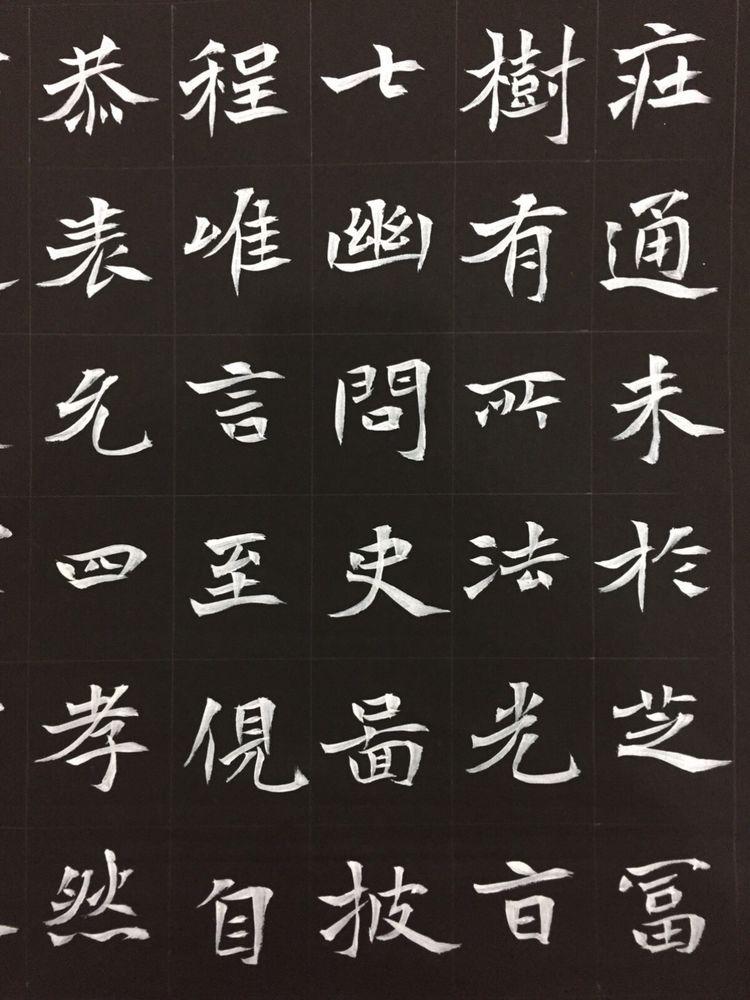 通未於芝冨
樹有所法光
七幽問史啚披
程唯言至俔自
恭表允四孝然